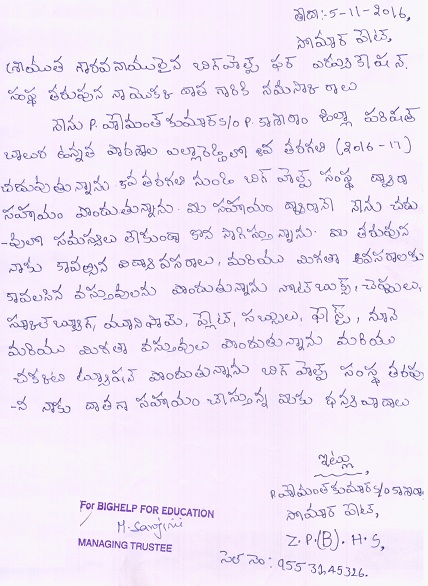 తేదా:-5-11-2016,
సోమార్ పేట్,
శ్రీయుత గౌరవనాములైన బిగ్ హెల్ప్ ఫర్ ఎడ్యుకేషన్.
సంస్థ తరుపున నాయొక్క దాత గారికి నమస్కారాలు
నేను P. హేమంత్ కుమార్ S/o P. కాశీరాం జిల్లా పరిషత్
బాలుర ఉన్నత పాఠశాల ఎల్లారెడ్డిలో తరగతి (2016-17)
చదువుతున్నాను. తరగతి నుండి బిగ్ హెల్ప్ సంస్థ ద్వారా
సహాయం పొందుతున్నాను. మి సహాయం ద్వారానే నేను చదు
-వులో సమస్యలు లేకుండా కొన సాగిస్తున్నాను. మి తరుపున
నాకు కావల్సిన విద్యావసరాలు, మరియు మిగతా అవసరాలకు
కావలసిన వస్తువులను పొందుతున్నాను నోట్ బుక్స్, చెప్పులు,
స్కూల్ బ్యాగ్, యూనిఫామ్, ప్లేట్, సబ్బులు, పేస్ట్, నూనె
మరియు మిగతా వస్తువులు పొందుతున్నాను మరియు
చక్కటి ట్యూషన్ పొందుతున్నాను బిగ్ హెల్ప్ సంస్థ తరపు
-న నాకు దాతగా సహాయం చేస్తున్న మికు ధన్యవాదాలు
ఇట్లు,
P. హేమంత్ కుమార్ S/o కాశీరాం
సోమార్ పేట్,
Z.P.(B).H.S,
సెల్ నెం: 9553145326.
For BIGHELP FOR EDUCATION
M. Sarojini
MANAGING TRUSTEE